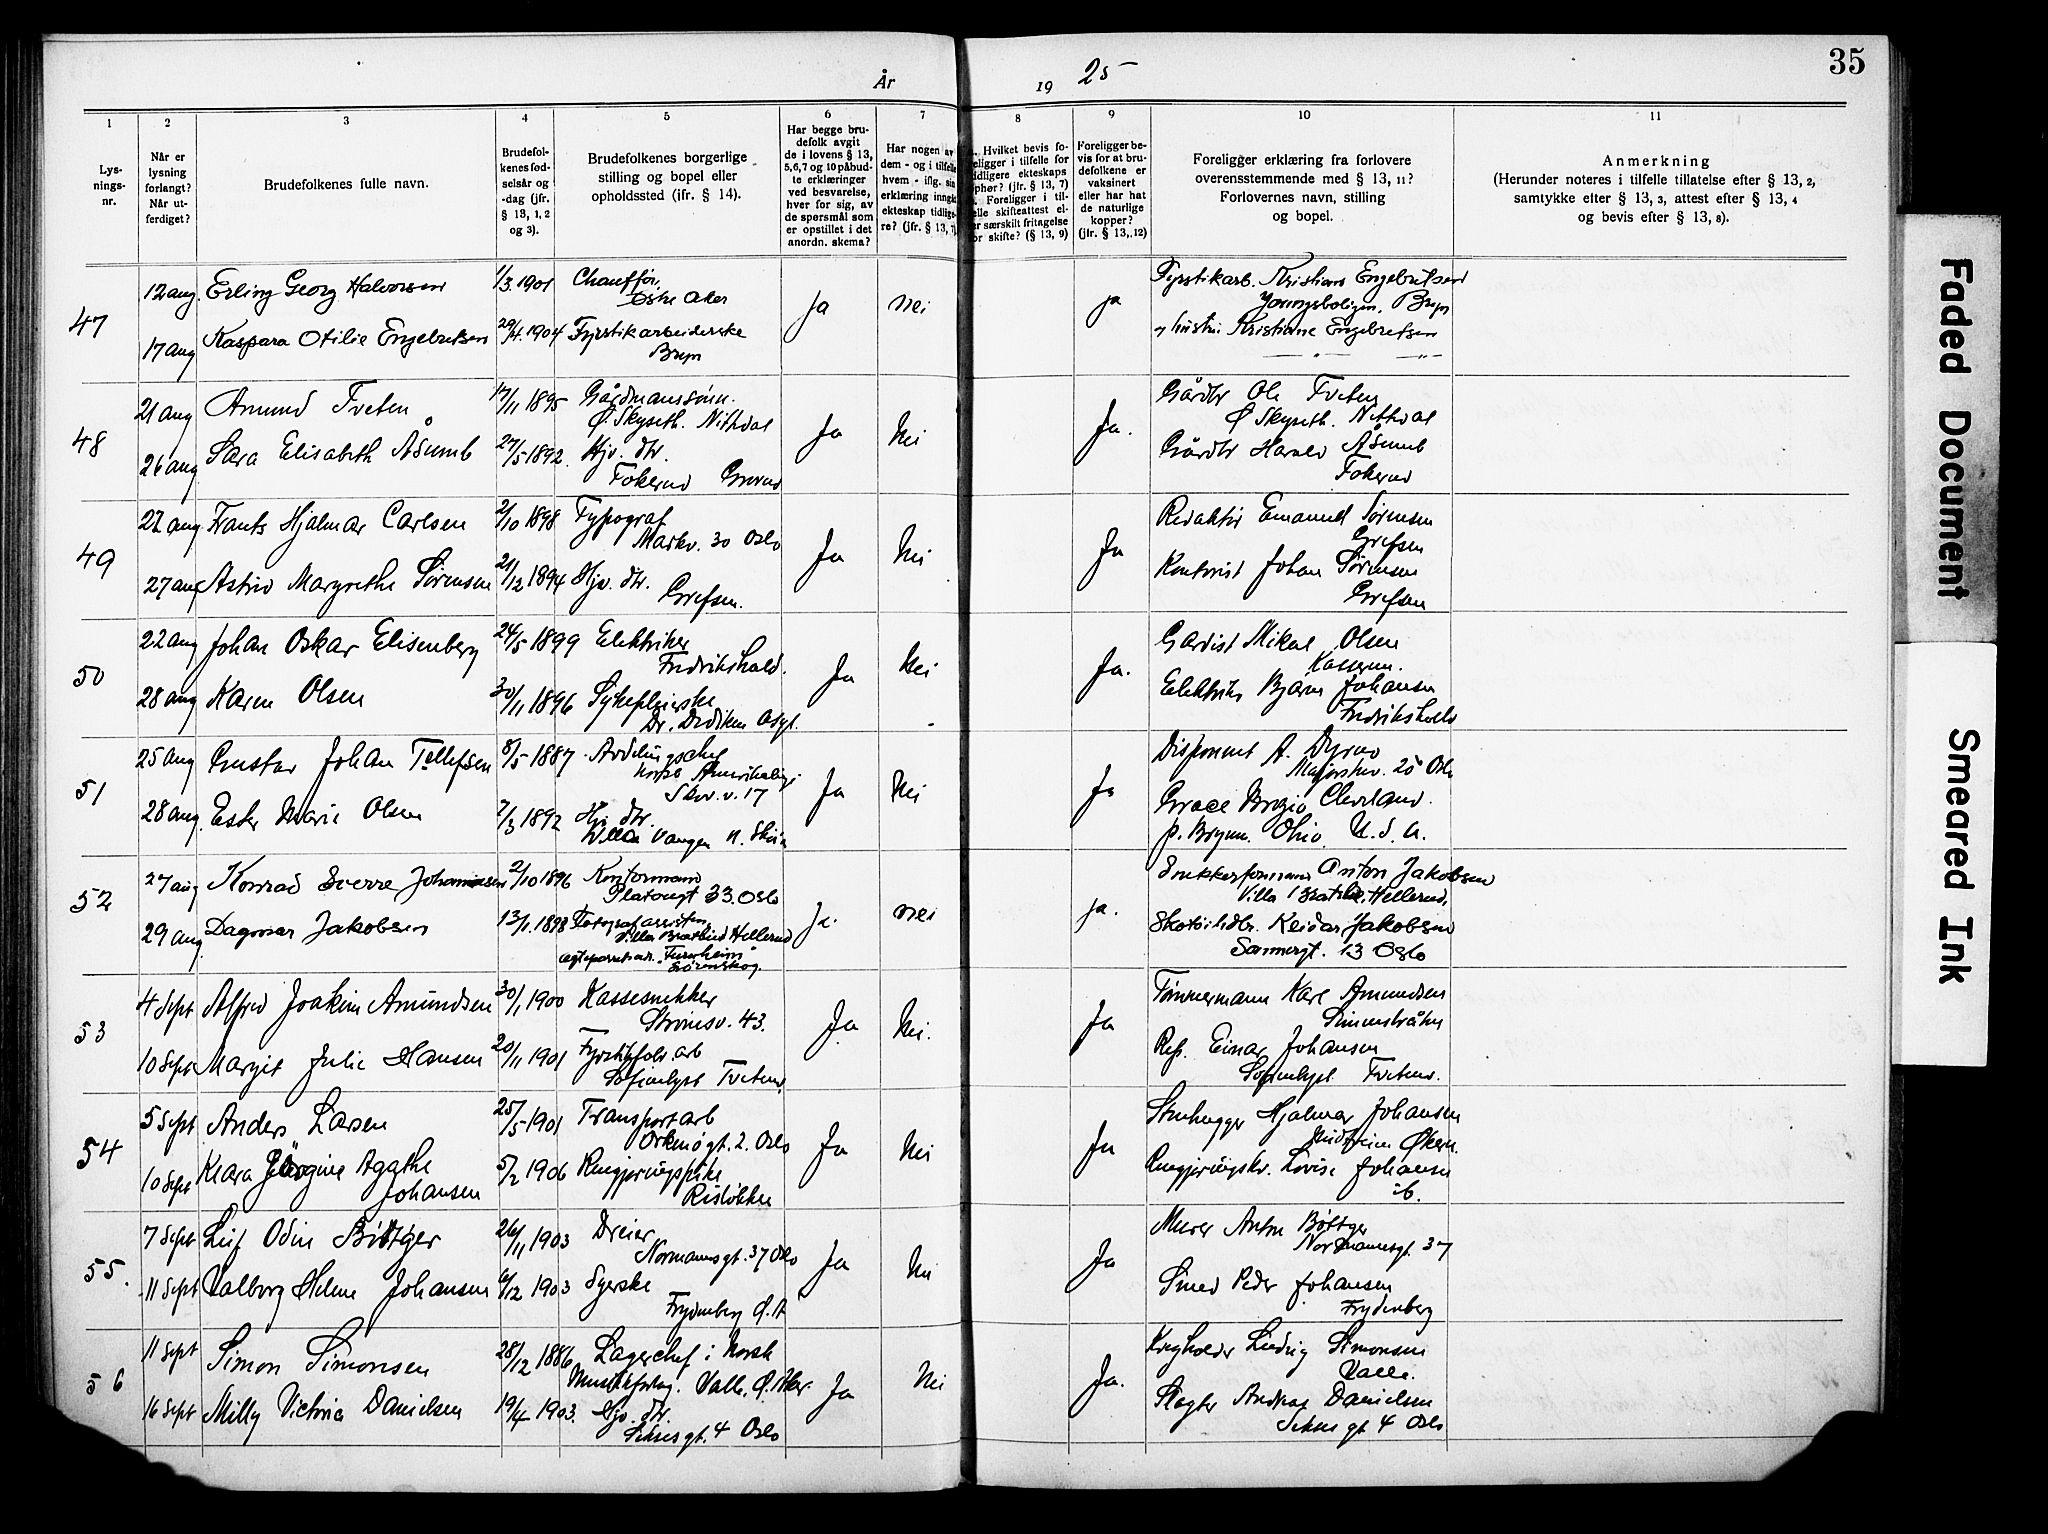 35
År 19 25
1 2 3 4 5 6 7 8 9 10 11
Lys-
nings-
nr.
Når er
lysning
forlangt?
Når ut-
ferdiget?
Brudefolkenes fulle navn.
Brudefol-
kenes fød-
selsår og
-dag (jfr.
§ 13, 1, 2
og 3).
Brudefolkenes borgerlige
stilling og bopel eller
opholdssted (ifr. § 14).
Har begge bru-
defolk avgit
de i lovens § 13,
5,6,7 og 10 påbud-
te erklæringer
ved besvarelse,
hver for sig, av
de spørsmål som
er opstillet i det
anordn. skema?
Har nogen av
dem - og i tilfelle
hvem - iflg. sin
erklæring inngåt
ekteskap tidlige-
re? (jfr. § 13, 7)
Hvilket bevis fo-
religger i tilfelle for
tidligere ekteskaps
ophør? (jfr. § 13, 7)
Foreligger i til-
felle skifteattest el-
ler særskilt fritagelse
for skifte? (§ 13, 9)
Foreligger be-
vis for at bru-
defolkene er
vaksinert
eller har hat
de naturlige
kopper?
(jfr. § 13, 12)
Foreligger erklæring fra forlovere
overensstemmende med § 13, 11?
Forlovernes navn, stilling
og bopel.
Anmerkning
(Herunder noteres i tilfelle tillatelse efter § 13, 2,
samtykke efter § 13, 3, attest efter § 13, 4
og bevis efter § 13, 8).
47
12 aug. Erling Georg Halvorsen 1/3 1901 Chauffør
Østre Aker
17 aug Kaspara Otilie Engebretsen 29/4 1904 Fyrstikarbeiderske
Bryn
ja nei ja
Fyrstikarb. Kristian Engebretsen
Youngsboligen, Bryn
Kristiane Engebretsen
48
21 aug Amund Tveten 17/11 1895 Gårdmannssønn.
Ø. Skyseth. Nittedal
26 aug Sara Elisabeth Åsumb 27/5 1892. Hjv. dtr.
Fokerud Grorud
Ja Nei Ja.
Gårdbr Ole Tveten
Ø Skyseth. Nittedal
Gårdbr Harald Åsumb
Fokerud
49
22 aug. Frants Hjalmar Carlsen 2/10 1898 Typograf
Markv. 30 Oslo
27 aug Astrid Margrethe Sørensen 21/12 1894 Hjv. dtr.
Grefsen.
Ja Nei Ja
Redaktør Emanuel Sørensen
Grefsen
Kontorist Johan Sørensen
Grefsen
50
22 aug Johan Oskar Elisenberg 24/5 1899 Elektriker
Fredrikshald.
28 aug Karen Olsen 30/11 1896 Sykepleierske
Dr. Dedichen asyl.
Ja Nei Ja.
Gardist Mikal Olsen
Kasernen.
Elektriker Bjarne Johansen
Fredrikshald
51
25 aug Gustav Johan Tellefsen 8/5 1887 Avdelingschef
norske Amerikalinje
Skov. v. 17
28 aug. Ester Marie Olsen 7/3 1892 Hjv. dtr.
Villa Vangen N. Skøien
Ja Nei Ja
Disponent A. Dyrud
Majorstuv. 25 Oslo
Grace Cleveland.
p. Ohio. U. S. A.
52
27 aug Konrad Sverre Johannesen 2/10 1896 Kontormann
Platousgt 33. Oslo
29 aug. Dagmar Jakobsen 13/1 1898 Fotografassistent
Villa Bratlid Hellerud
Furuheim
Lørenskog.
Ja. nei ja.
Snekkerformann Anton Jakobsen
Villa Bratlid, Hellerud.
Skotøihdlr. Reidar Jakobsen
Sannergt. 13 Oslo
53
4 Sept Alfred Joakim Amundsen 30/1 1900 Kassesnekker
Strømsv. 43.
10 Sept Margit Julie Hansen 20/11 1901 Fyrstikfabr. arb
Sofienlyst Tveten.
Ja Nei. Ja
Tømmermann Karl Amundsen
Simenstråten
Rep. Einar Johansen
Sofienlyst Tveten.
54
5 Sept Anders Larsen 25/5 1901 Transportarb
Orknøgt. 2. Oslo
10 Sept Klara Jørgine Agathe
Johansen 5/2 1906 Rengjøringspike
Risløkken
Ja Nei Ja
Stenhugger Hjalmar Johansen
Økern.
Rengjøringskv. Lovise Johansen
ib.
55.
7 Sept Leif Odin Bøttger 26/11 1903 Dreier
Normannsgt. 37 Oslo
11 Sept Valborg Helene Johansen 6/12 1903 Syerske
Frydenberg Ø. A
Ja Nei Ja
Murer Anton Bøttger
Normannsgt. 37
Smed Peder Johansen
Frydenberg
56
11 Sept Simon Simonsen 28/12 1886 Lagerchef i Norsk
Musikforlag. Valle. Ø. Aker.
16 Sept Milly Victoria Danielsen 19/4 1903. Hjv. dtr.
Schousgt. 4 Oslo
Ja Nei Ja.
Ludvig Simonsen
Valle.
Slagter Andreas Danielsen
Schous gt 4 Oslo
Faded Document
Smeared Ink